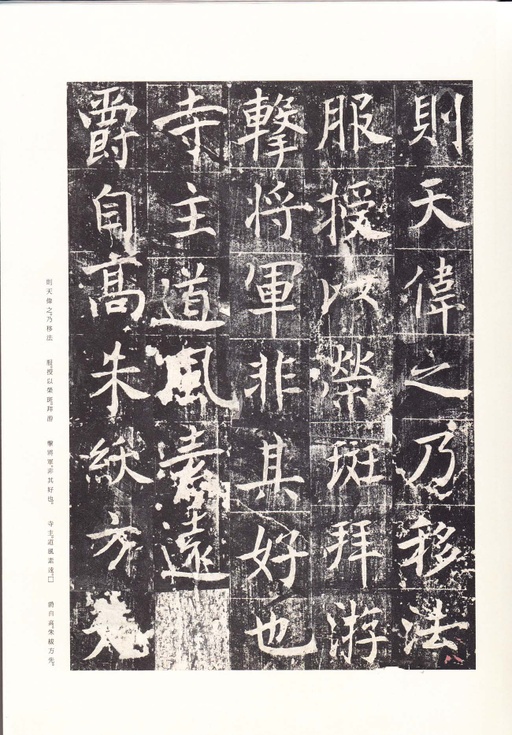 則天偉之乃移法
服授以榮班拜游
擊将軍非其好也
寺主道風素遠
爵自高朱紱方
則天偉之,乃移法 服,授以榮班,拜游 擊將軍,非其好也。 寺主道風素遠,□ 爵自高,朱紱方